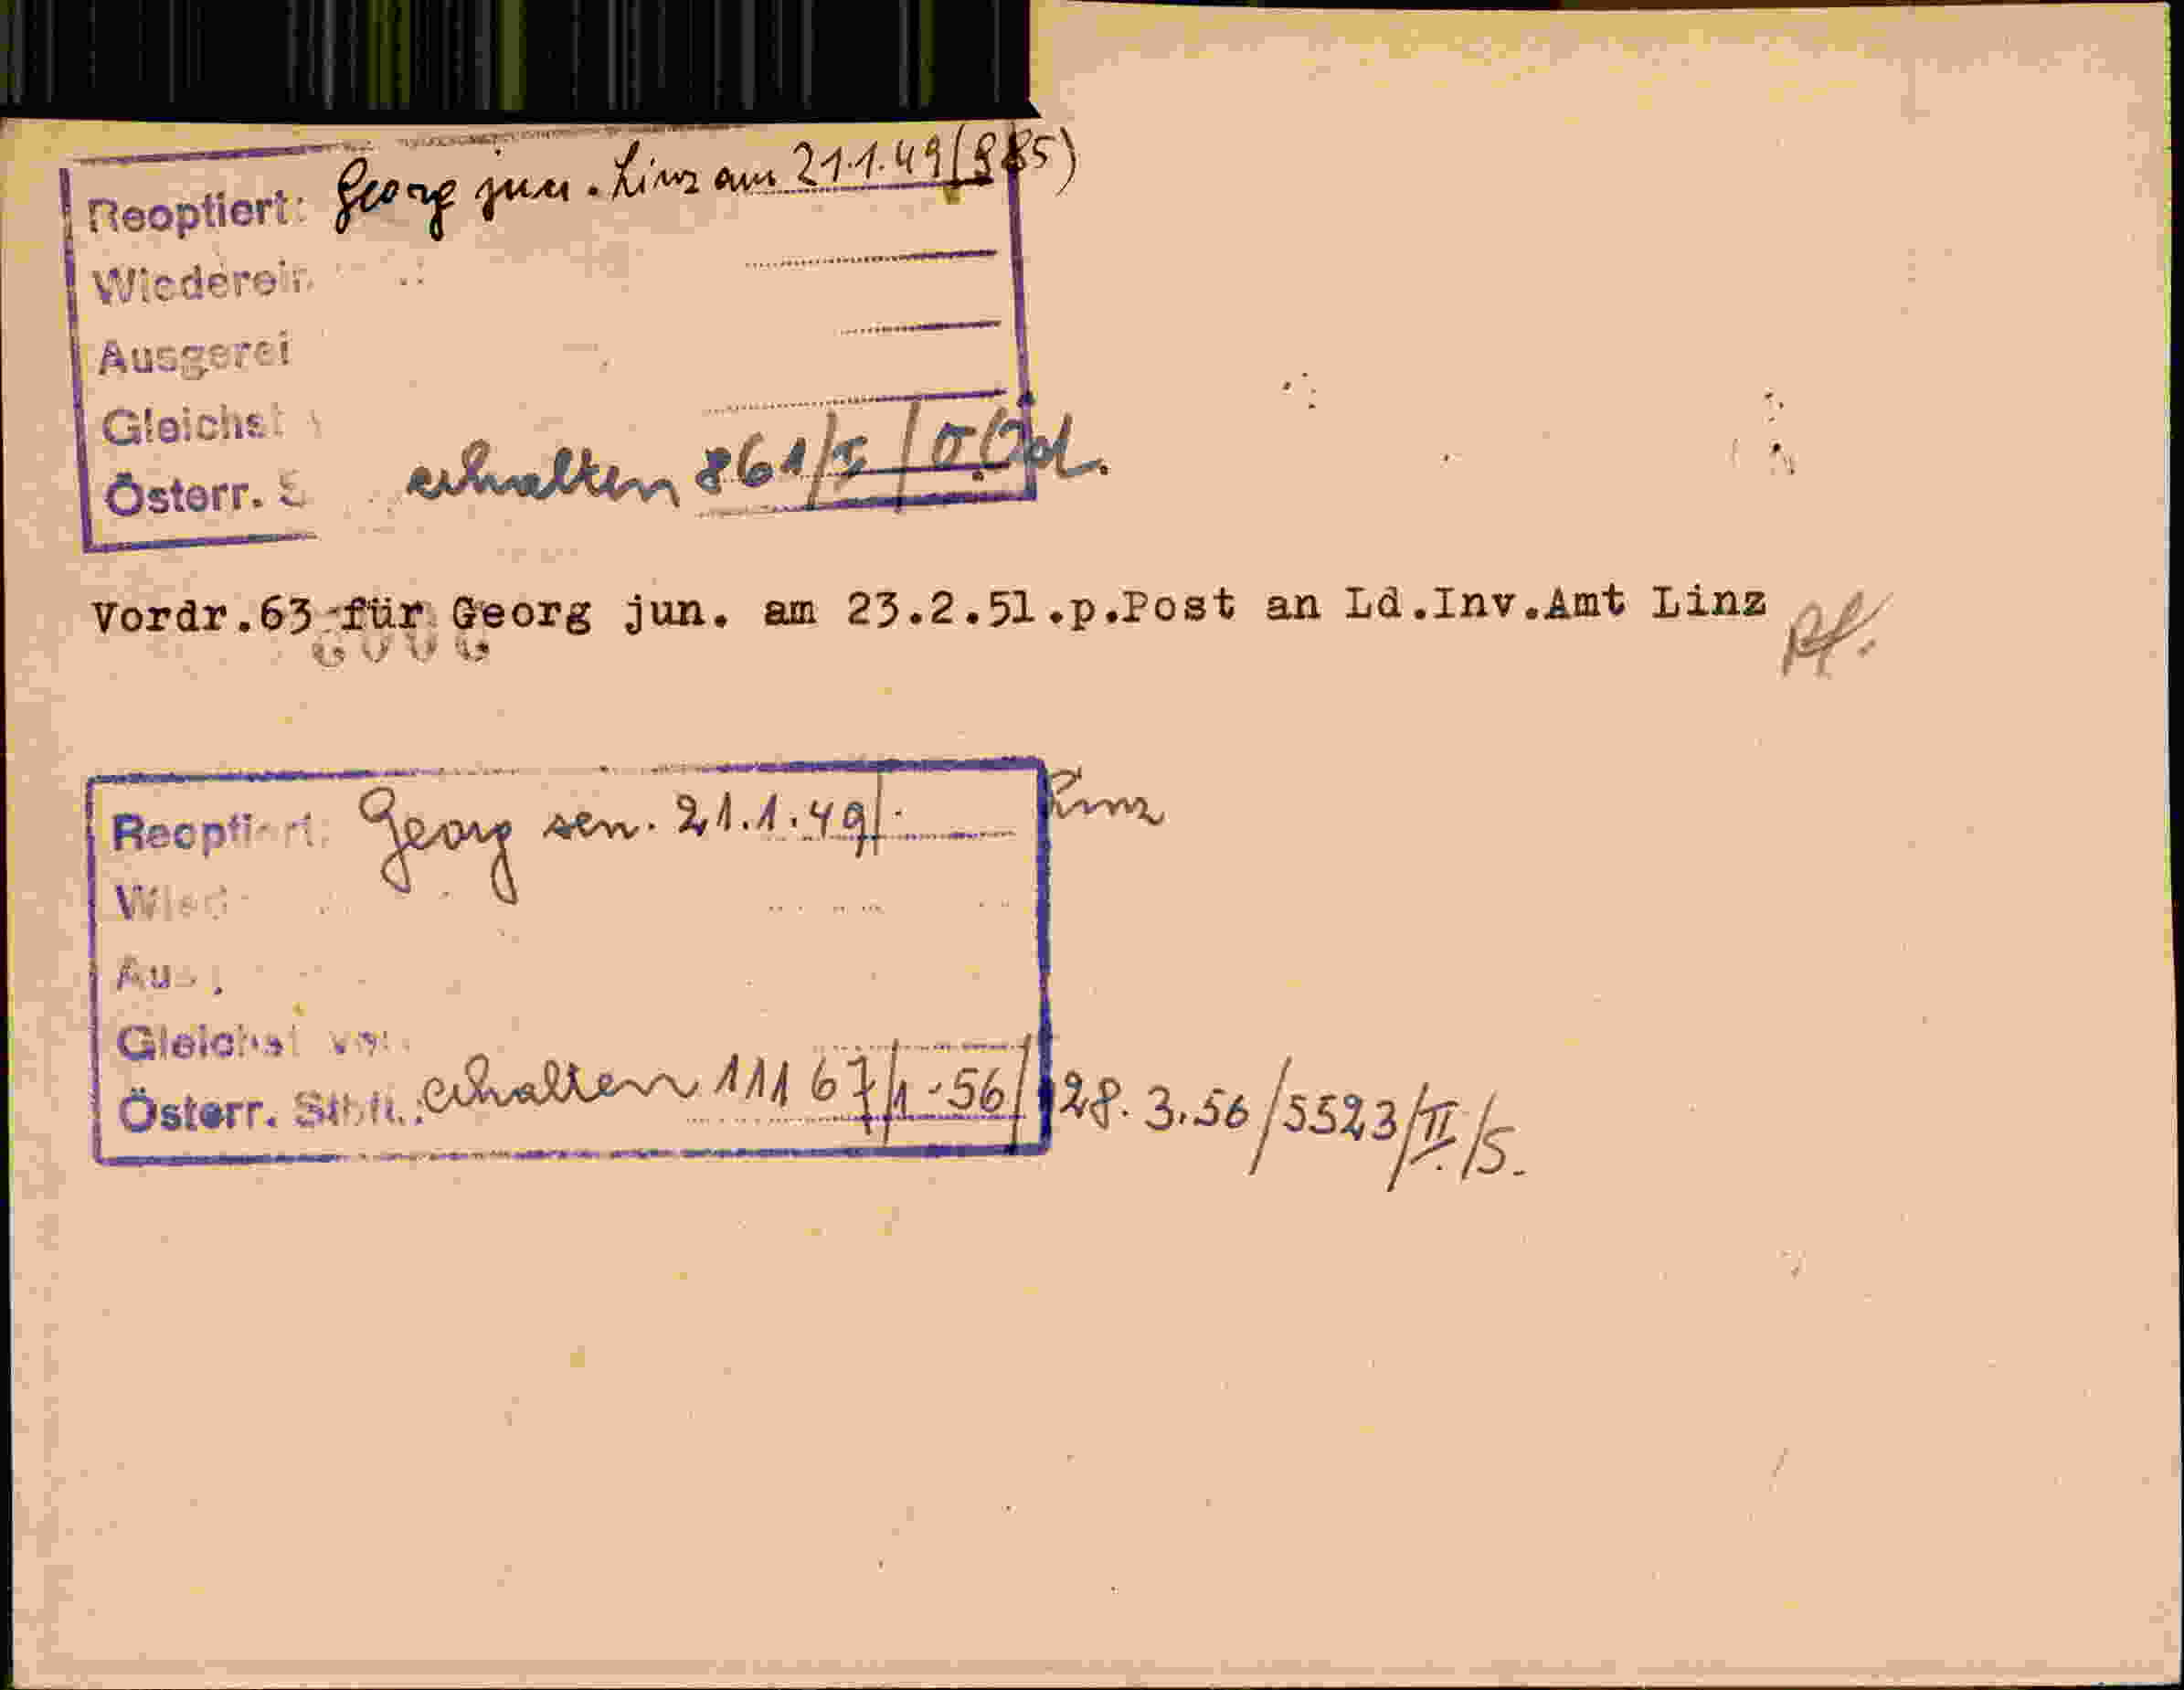 Reoptiert: Georg jun. Linz am 21.1.49 (985)
Wiederein
Ausgerei
Gleichst v
Österr. S erhalten 861/5/O.Öst.
Vordr.63 für Georg jun. am 23.2.51.p.Post an Ld.Inv.Amt Linz
Reoptiert: Georg sen. 21.1.49/. Linz
Wied
Aus
Gleichst von
Österr. Stbft.: erhalten 11167/1-56/28.3.56/5523/II/S.